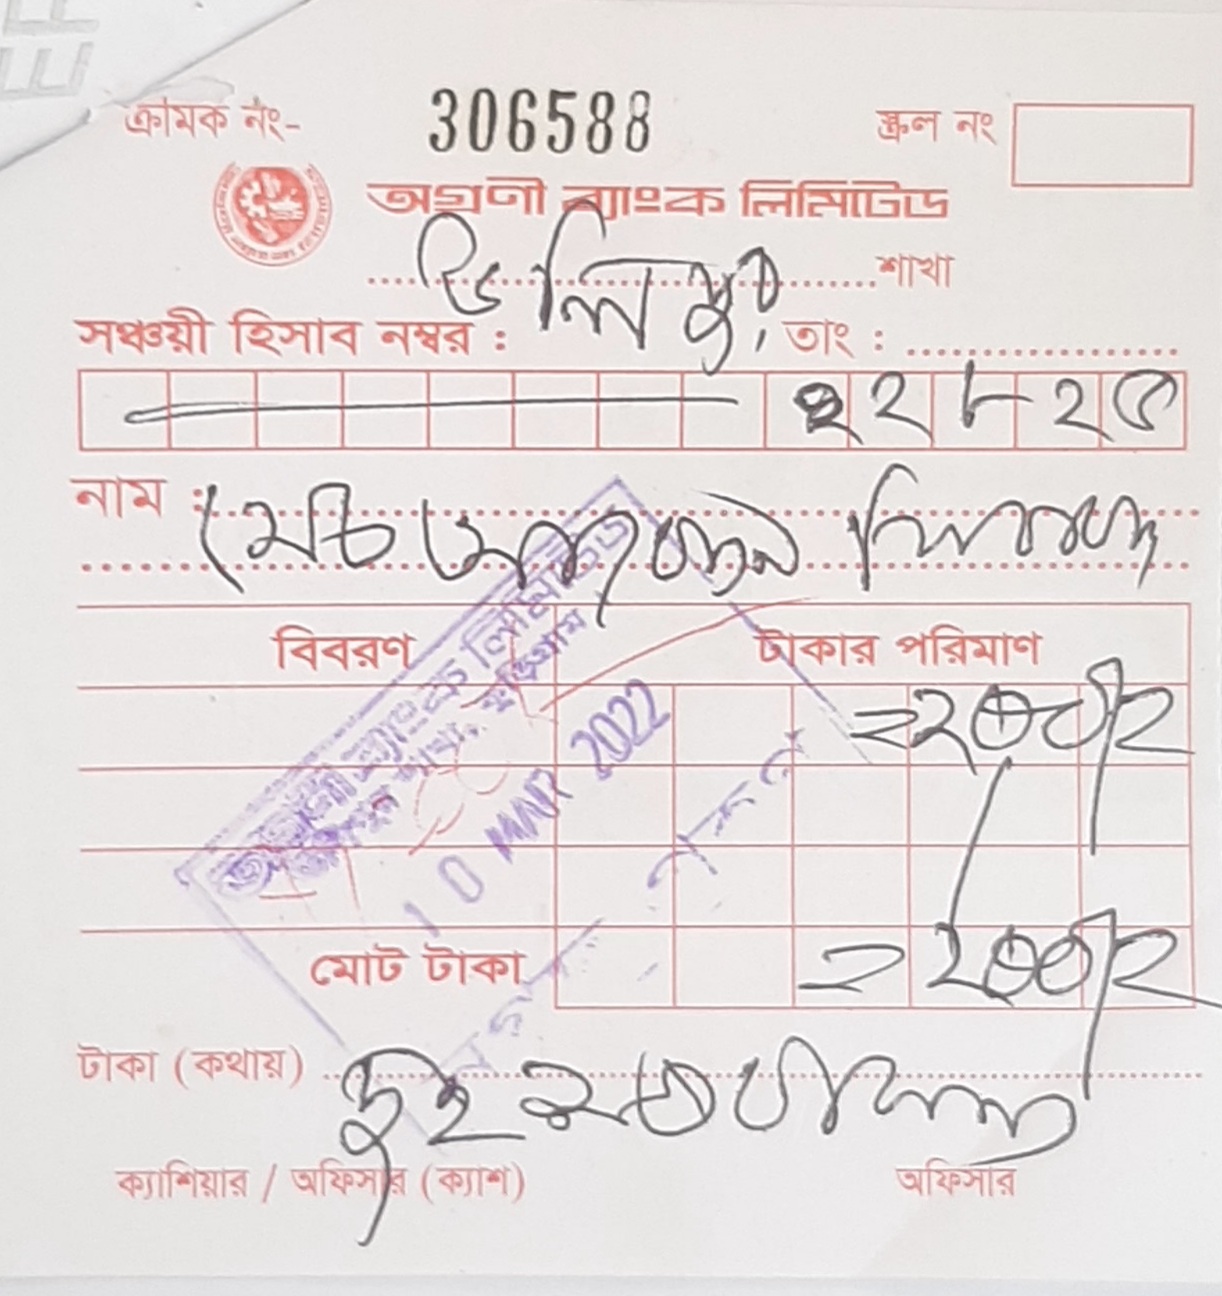 ক্রমিক নং- 306588 স্ক্রল নং
অগ্রণী ব্যাংক লিমিটেড
উলিপুর শাখা
সঞ্চয়ী হিসাব নম্বর : তাং :
২২৮২৫
নাম : মোট
বিবরণ টাকার পরিমাণ
=২০০/=
মোট টাকা =২০০/=
টাকা (কথায়) দুই শত টাকা মাত্র
ক্যাশিয়ার / অফিসার (ক্যাশ) অফিসার
অগ্রণী ব্যাংক লিমিটেড
উলিপুর শাখা, কুড়িগ্রাম
10 MAR 2022